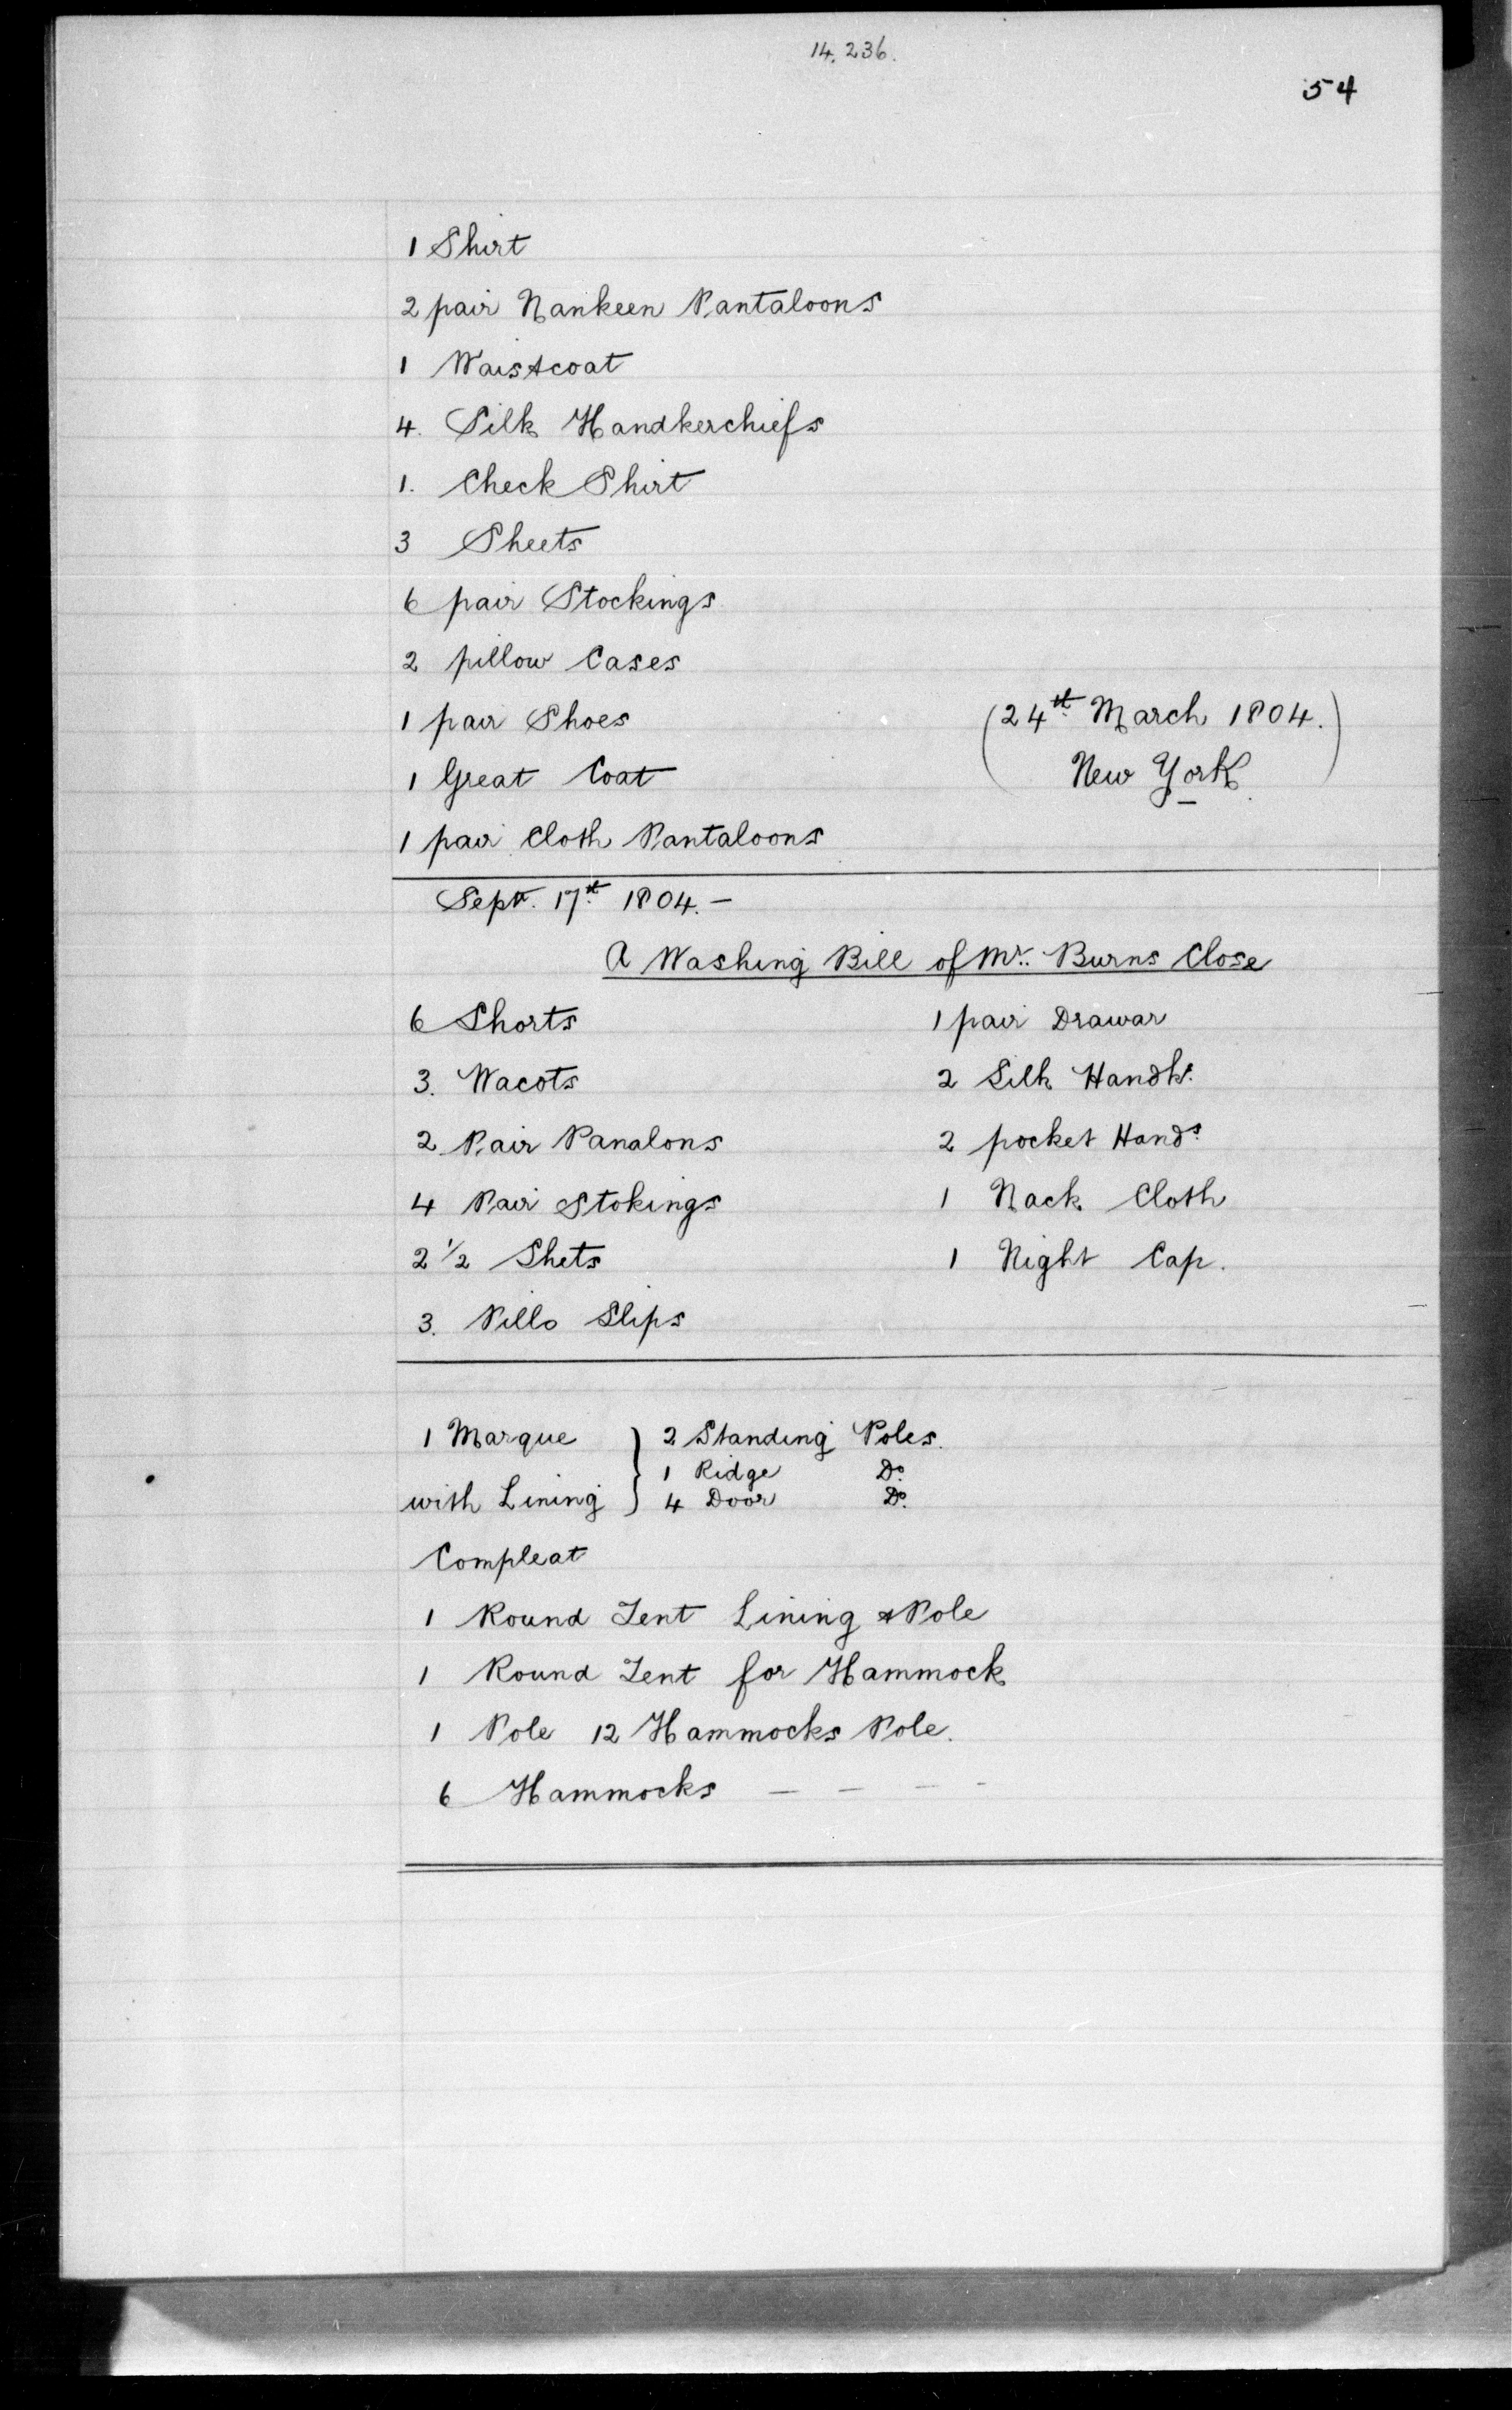 14,236.
54
1 Shirt
2 pair Nankeen Pantaloons
1 Waistcoat
4. Silk Handkerchiefs
1. Check Shirt
3 Sheets
6 pair Stockings
2 pillow Cases
1 pair Shoes
(24th March 1804.)
1 Great Coat
New York
1 pair Cloth Pantaloons
Septr. 17th 1804. —
A Washing Bill of Mr. Burns Close
6 Shorts
1 pair Drawar
3. Wacots
2 Silk Handks.
2 Pair Panalons
2 pocket Hands.
4 Pair Stokings
1 Nack Cloth
2 1/2 Shets
1 Night Cap.
3. Pillo Slips
1 Marque } 2 Standing Poles.
1 Ridge Do.
with Lining } 4 Door Do.
Compleat
1 Round Tent Lining & Pole
1 Round Tent for Hammock
1 Pole 12 Hammocks Pole.
6 Hammocks — — — -